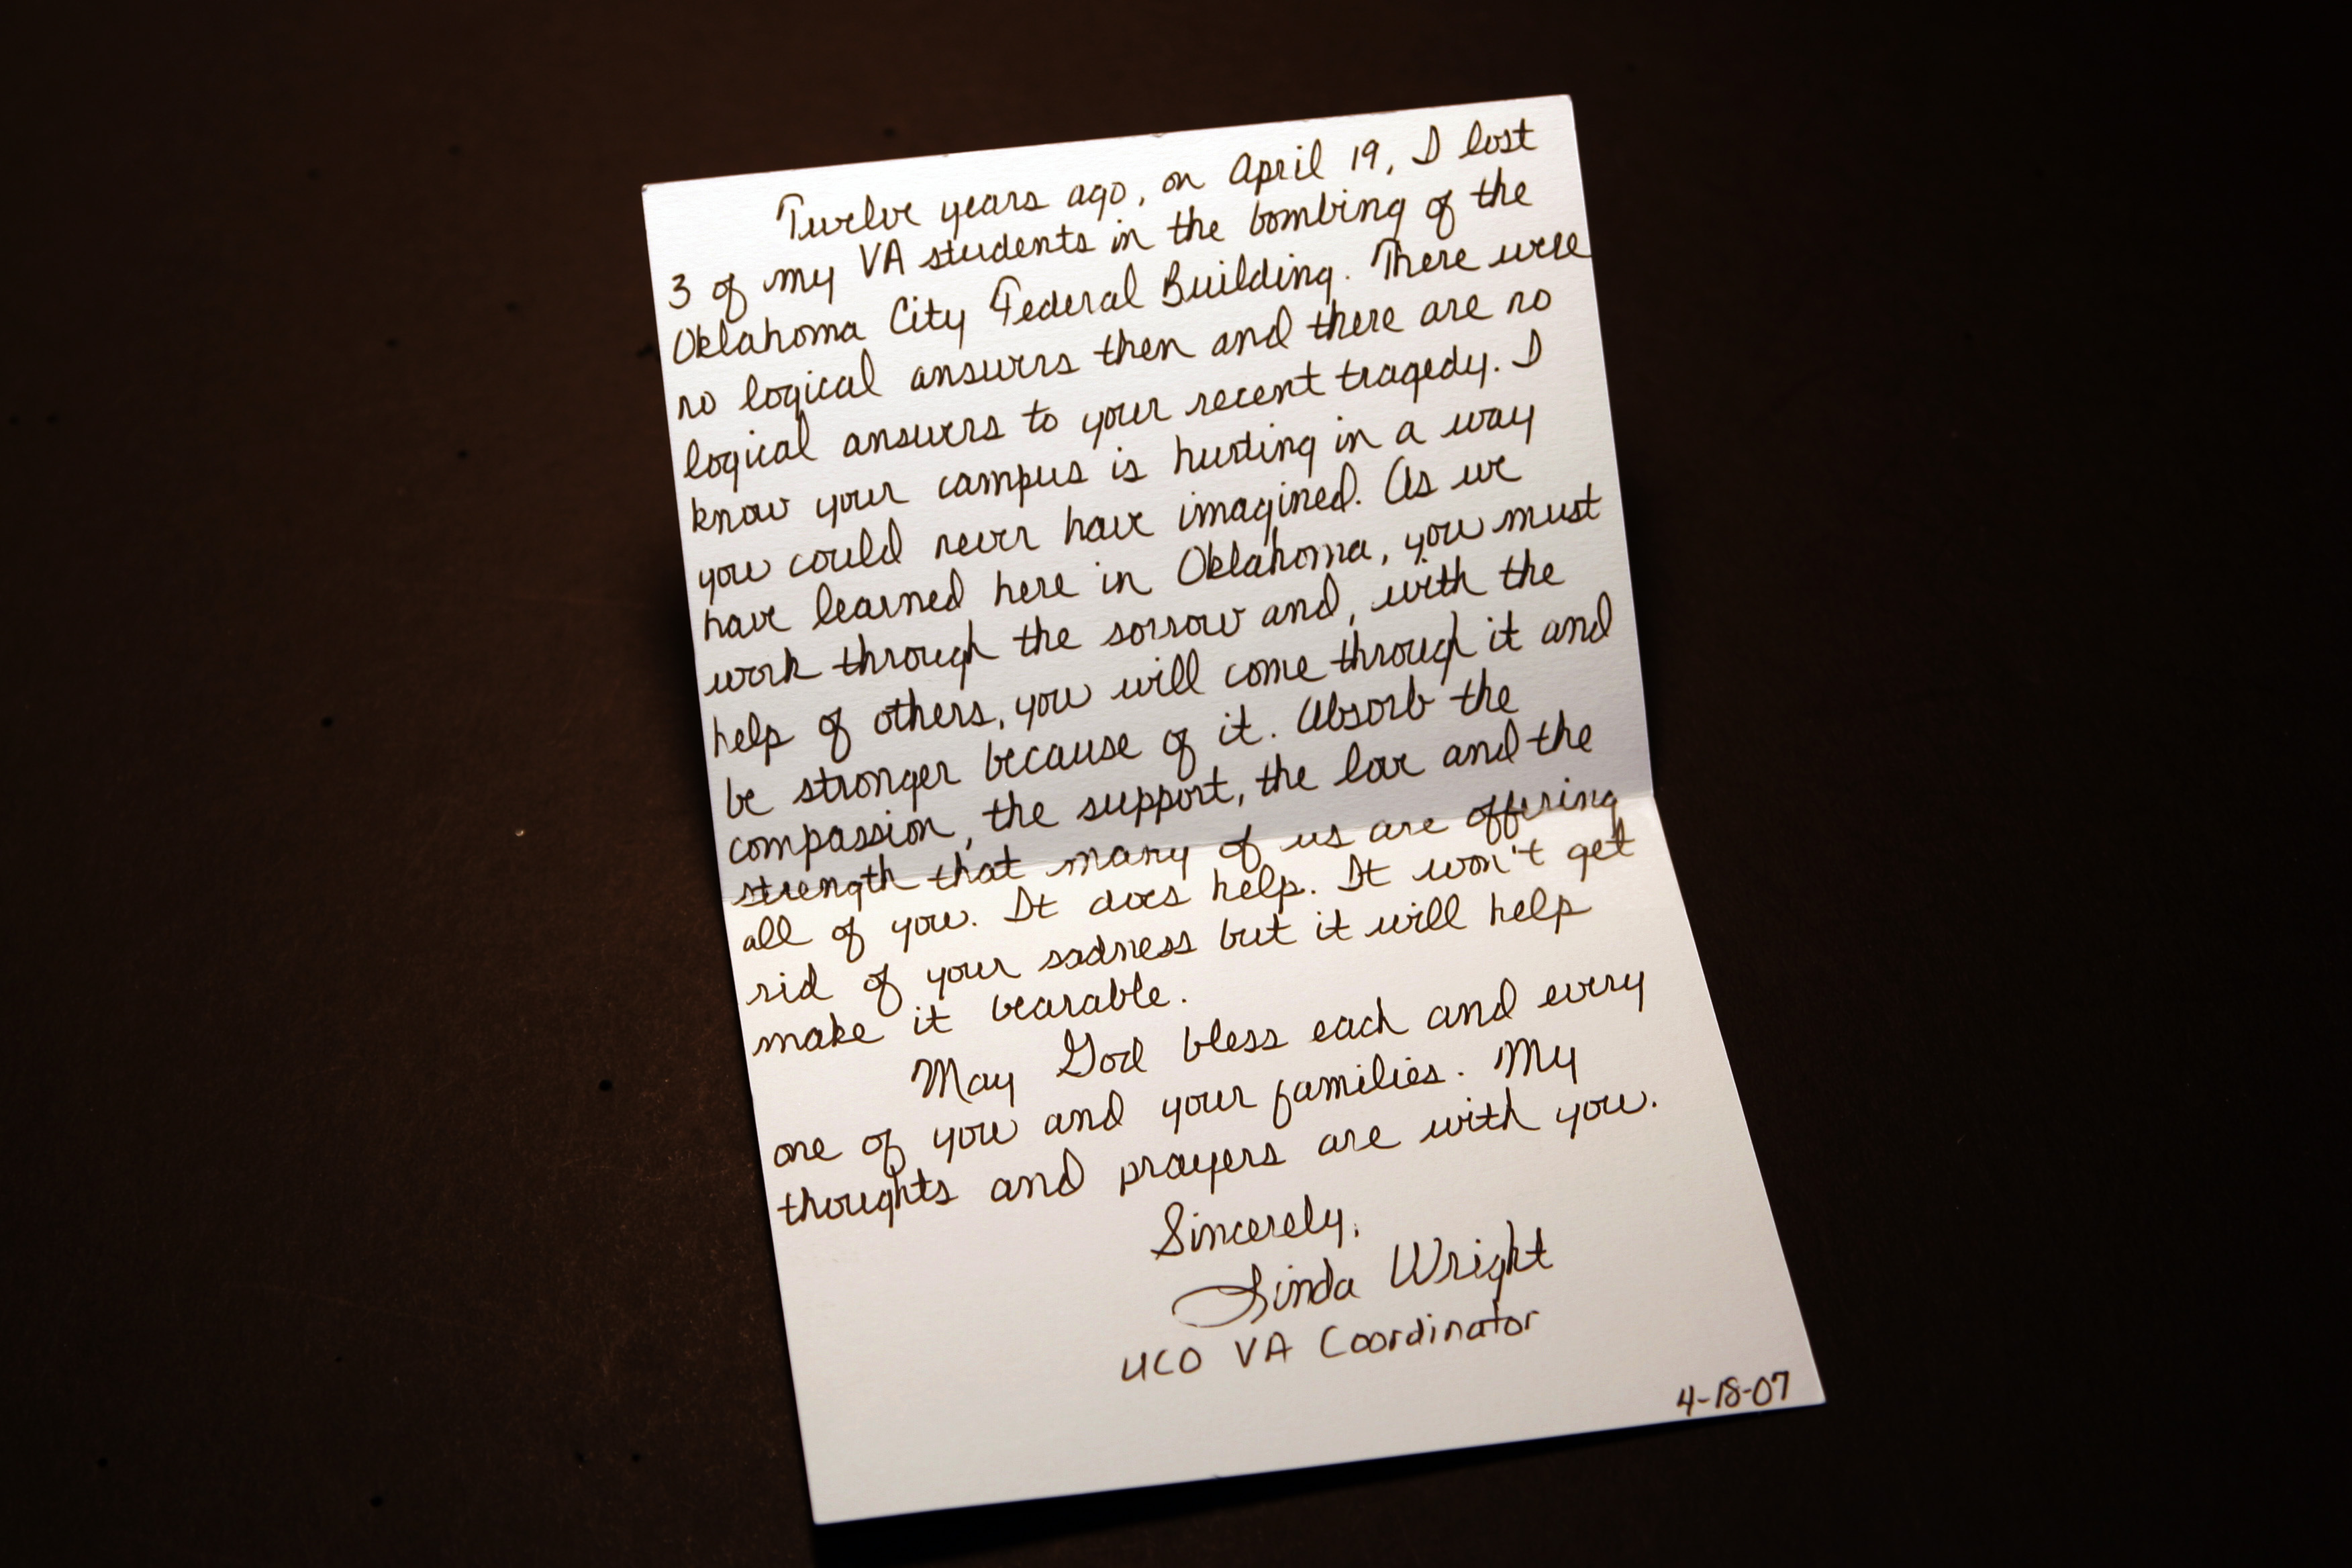 Twelve years ago, on April 19, I lost
3 of my VA students in the bombing of the
Oklahoma City Federal Building. There were
no logical answers then and there are no
logical answers to your recent tragedy. I
know your campus is hurting in a way
you could never have imagined. As we
have learned here in Oklahoma, you must
work through the sorrow and, with the
help of others, you will come through it and
be stronger because of it. Absorb the
compassion, the support, the love and the
strength that many of us are offering
all of you. It does help. It won't get
rid of your sadness but it will help
make it bearable.
May God bless each and every
one of you and your families. My
thoughts and prayers are with you.
Sincerely,
Linda Wright
UCO VA Coordinator
4-18-07